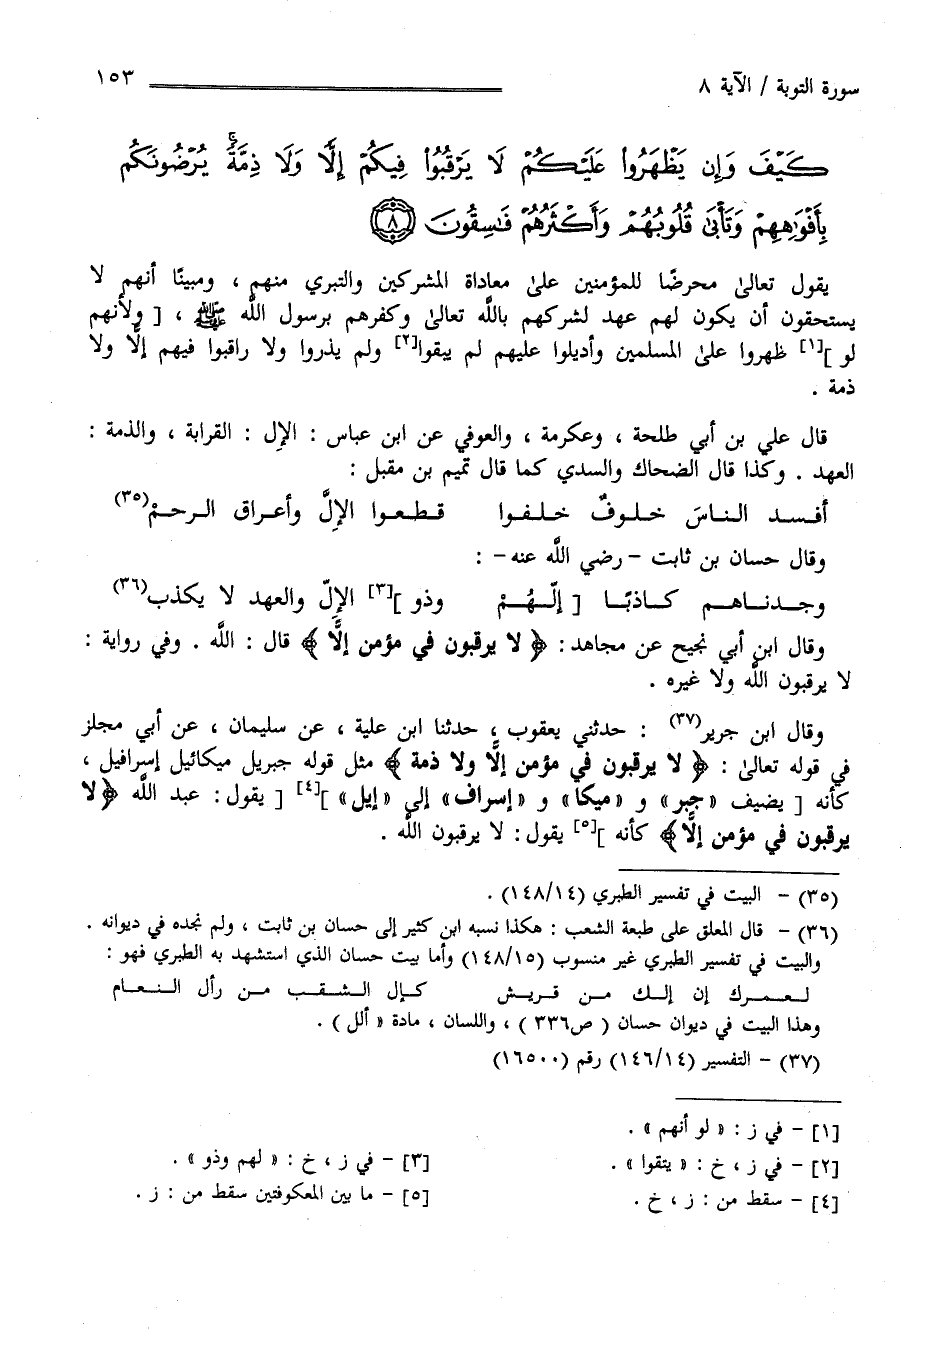 سورة التوبة / الآية ٨ ١٥٣
كَيْفَ وَإِن يَظْهَرُوا۟ عَلَيْكُمْ لَا يَرْقُبُوا۟ فِيكُمْ إِلًّا وَلَا ذِمَّةً ۚ يُرْضُونَكُم
بِأَفْوَٰهِهِمْ وَتَأْبَىٰ قُلُوبُهُمْ وَأَكْثَرُهُمْ فَـٰسِقُونَ ٨
يقول تعالى محرضًا للمؤمنين على معاداة المشركين والتبري منهم ، ومبينًا أنهم لا
يستحقون أن يكون لهم عهد لشركهم بالله تعالى وكفرهم برسول الله ﷺ ، [ ولأنهم
لو ][١] ظهروا على المسلمين وأديلوا عليهم لم يبقوا[٢] ولم يذروا ولا راقبوا فيهم إلًّا ولا
ذمة .
قال علي بن أبي طلحة ، وعكرمة ، والعوفي عن ابن عباس : الإل : القرابة ، والذمة :
العهد . وكذا قال الضحاك والسدي كما قال تميم بن مقبل :
أفسد الناسَ خلوفٌ خلفوا قطعوا الإلَّ وأعراق الرحمْ(٣٥)
وقال حسان بن ثابت - رضي الله عنه - :
وجدناهم كاذبًا [ إلّهُمْ وذو ][٣] الإلّ والعهد لا يكذب(٣٦)
وقال ابن أبي نجيح عن مجاهد : ﴿ لا يرقبون في مؤمن إلًّا ﴾ قال : الله . وفي رواية :
لا يرقبون الله ولا غيره .
وقال ابن جرير(٣٧) : حدثني يعقوب ، حدثنا ابن علية ، عن سليمان ، عن أبي مجلز
في قوله تعالى : ﴿ لا يرقبون في مؤمن إلًّا ولا ذمة ﴾ مثل قوله جبريل ميكائيل إسرافيل ،
كأنه [ يضيف «جبر» و «ميكا» و «إسراف» إلى «إيل» ][٤] [ يقول : عبد الله ﴿ لا
يرقبون في مؤمن إلًّا﴾ كأنه ][٥] يقول : لا يرقبون الله .
(٣٥) - البيت في تفسير الطبري (١٤٨/١٤) .
(٣٦) - قال المعلق على طبعة الشعب : هكذا نسبه ابن كثير إلى حسان بن ثابت ، ولم نجده في ديوانه .
والبيت في تفسير الطبري غير منسوب (١٤٨/١٥) وأما بيت حسان الذي استشهد به الطبري فهو :
لعمرك إن إلك من قريش كإل الشقب من رأل النعام
وهذا البيت في ديوان حسان ( ص٣٣٦ ) ، واللسان ، مادة « ألل ) .
(٣٧) - التفسير (١٤٦/١٤) رقم (١٦٥٠٠)
[١] - في ز : « لو أنهم » .
[٢] - في ز ، خ : « يتقوا » . [٣] - في ز ، خ : « لهم وذو » .
[٤] - سقط من : ز ، خ . [٥] - ما بين المعكوفتين سقط من : ز .